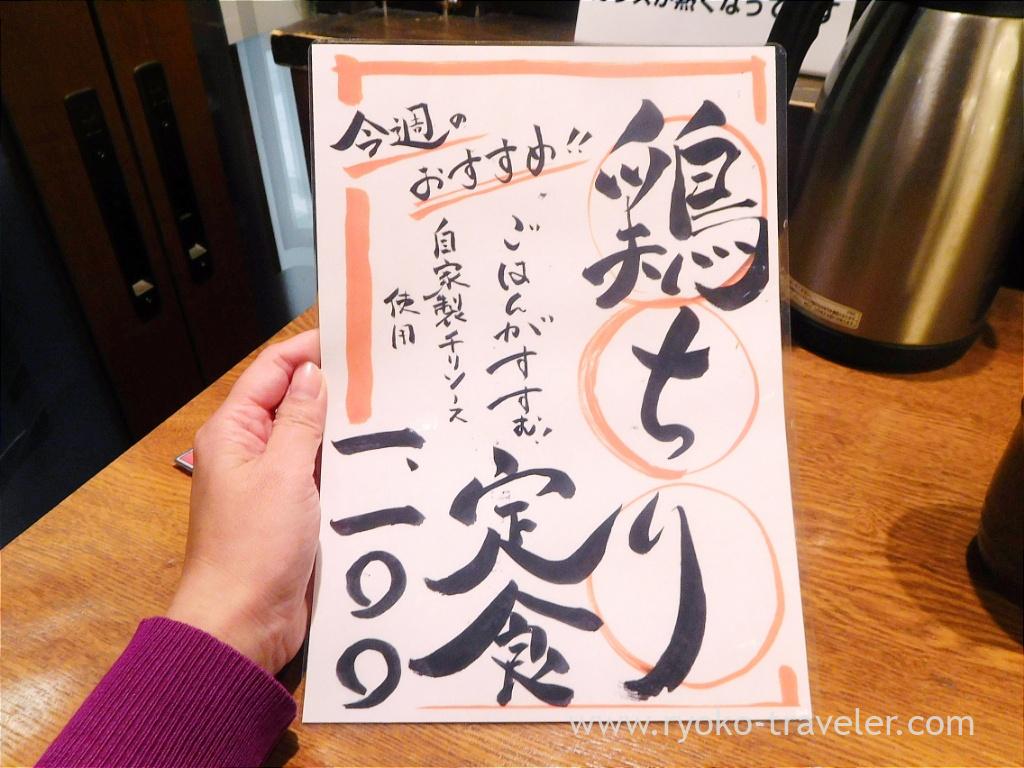 鶏ちり
定食
今週の
おすすめ!!
ごはんがすすむ!
自家製チリソース
使用
一、一〇〇
www.ryoko-traveler.com